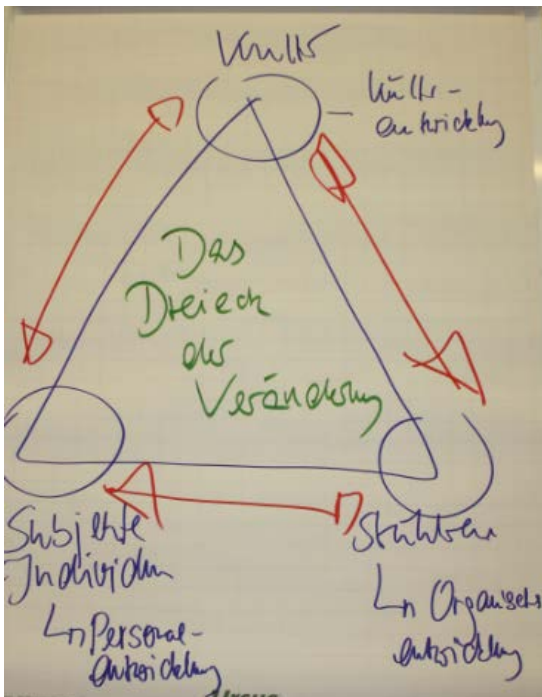 Kultur
Kultur-
entwicklung
Das
Dreieck
der
Veränderung
Subjekte
Individuen
Personal-
entwicklung
Strukturen
Organisations
entwicklung